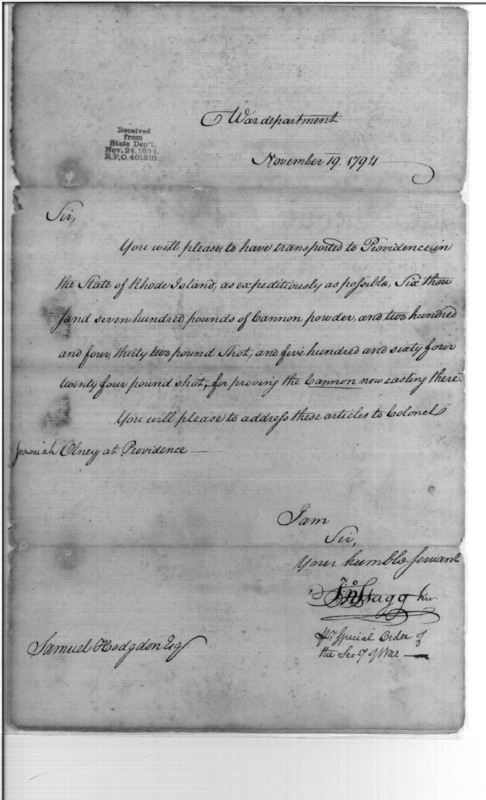 War department
November 19, 1794
Received
from
State Dep't.
Nov. 24, 1894.
R.P.O. 401510.
Sir,
You will please to have transported to Providence in
the State of Rhode Island, as expeditiously as possible, Six thou
sand seven hundred pounds of Cannon powder, and two hundred
and four, thirty two pound Shot, and five hundred and sixty four
twenty four pound shot, for proving the Cannon now casting there.
You will please to address these articles to Colonel
Jeremiah Olney at Providence —
I am
Sir,
Your humble Servant
Jno Stagg Jnr
By Special Order of
the Secy of War —
Samuel Hodgdon Esq